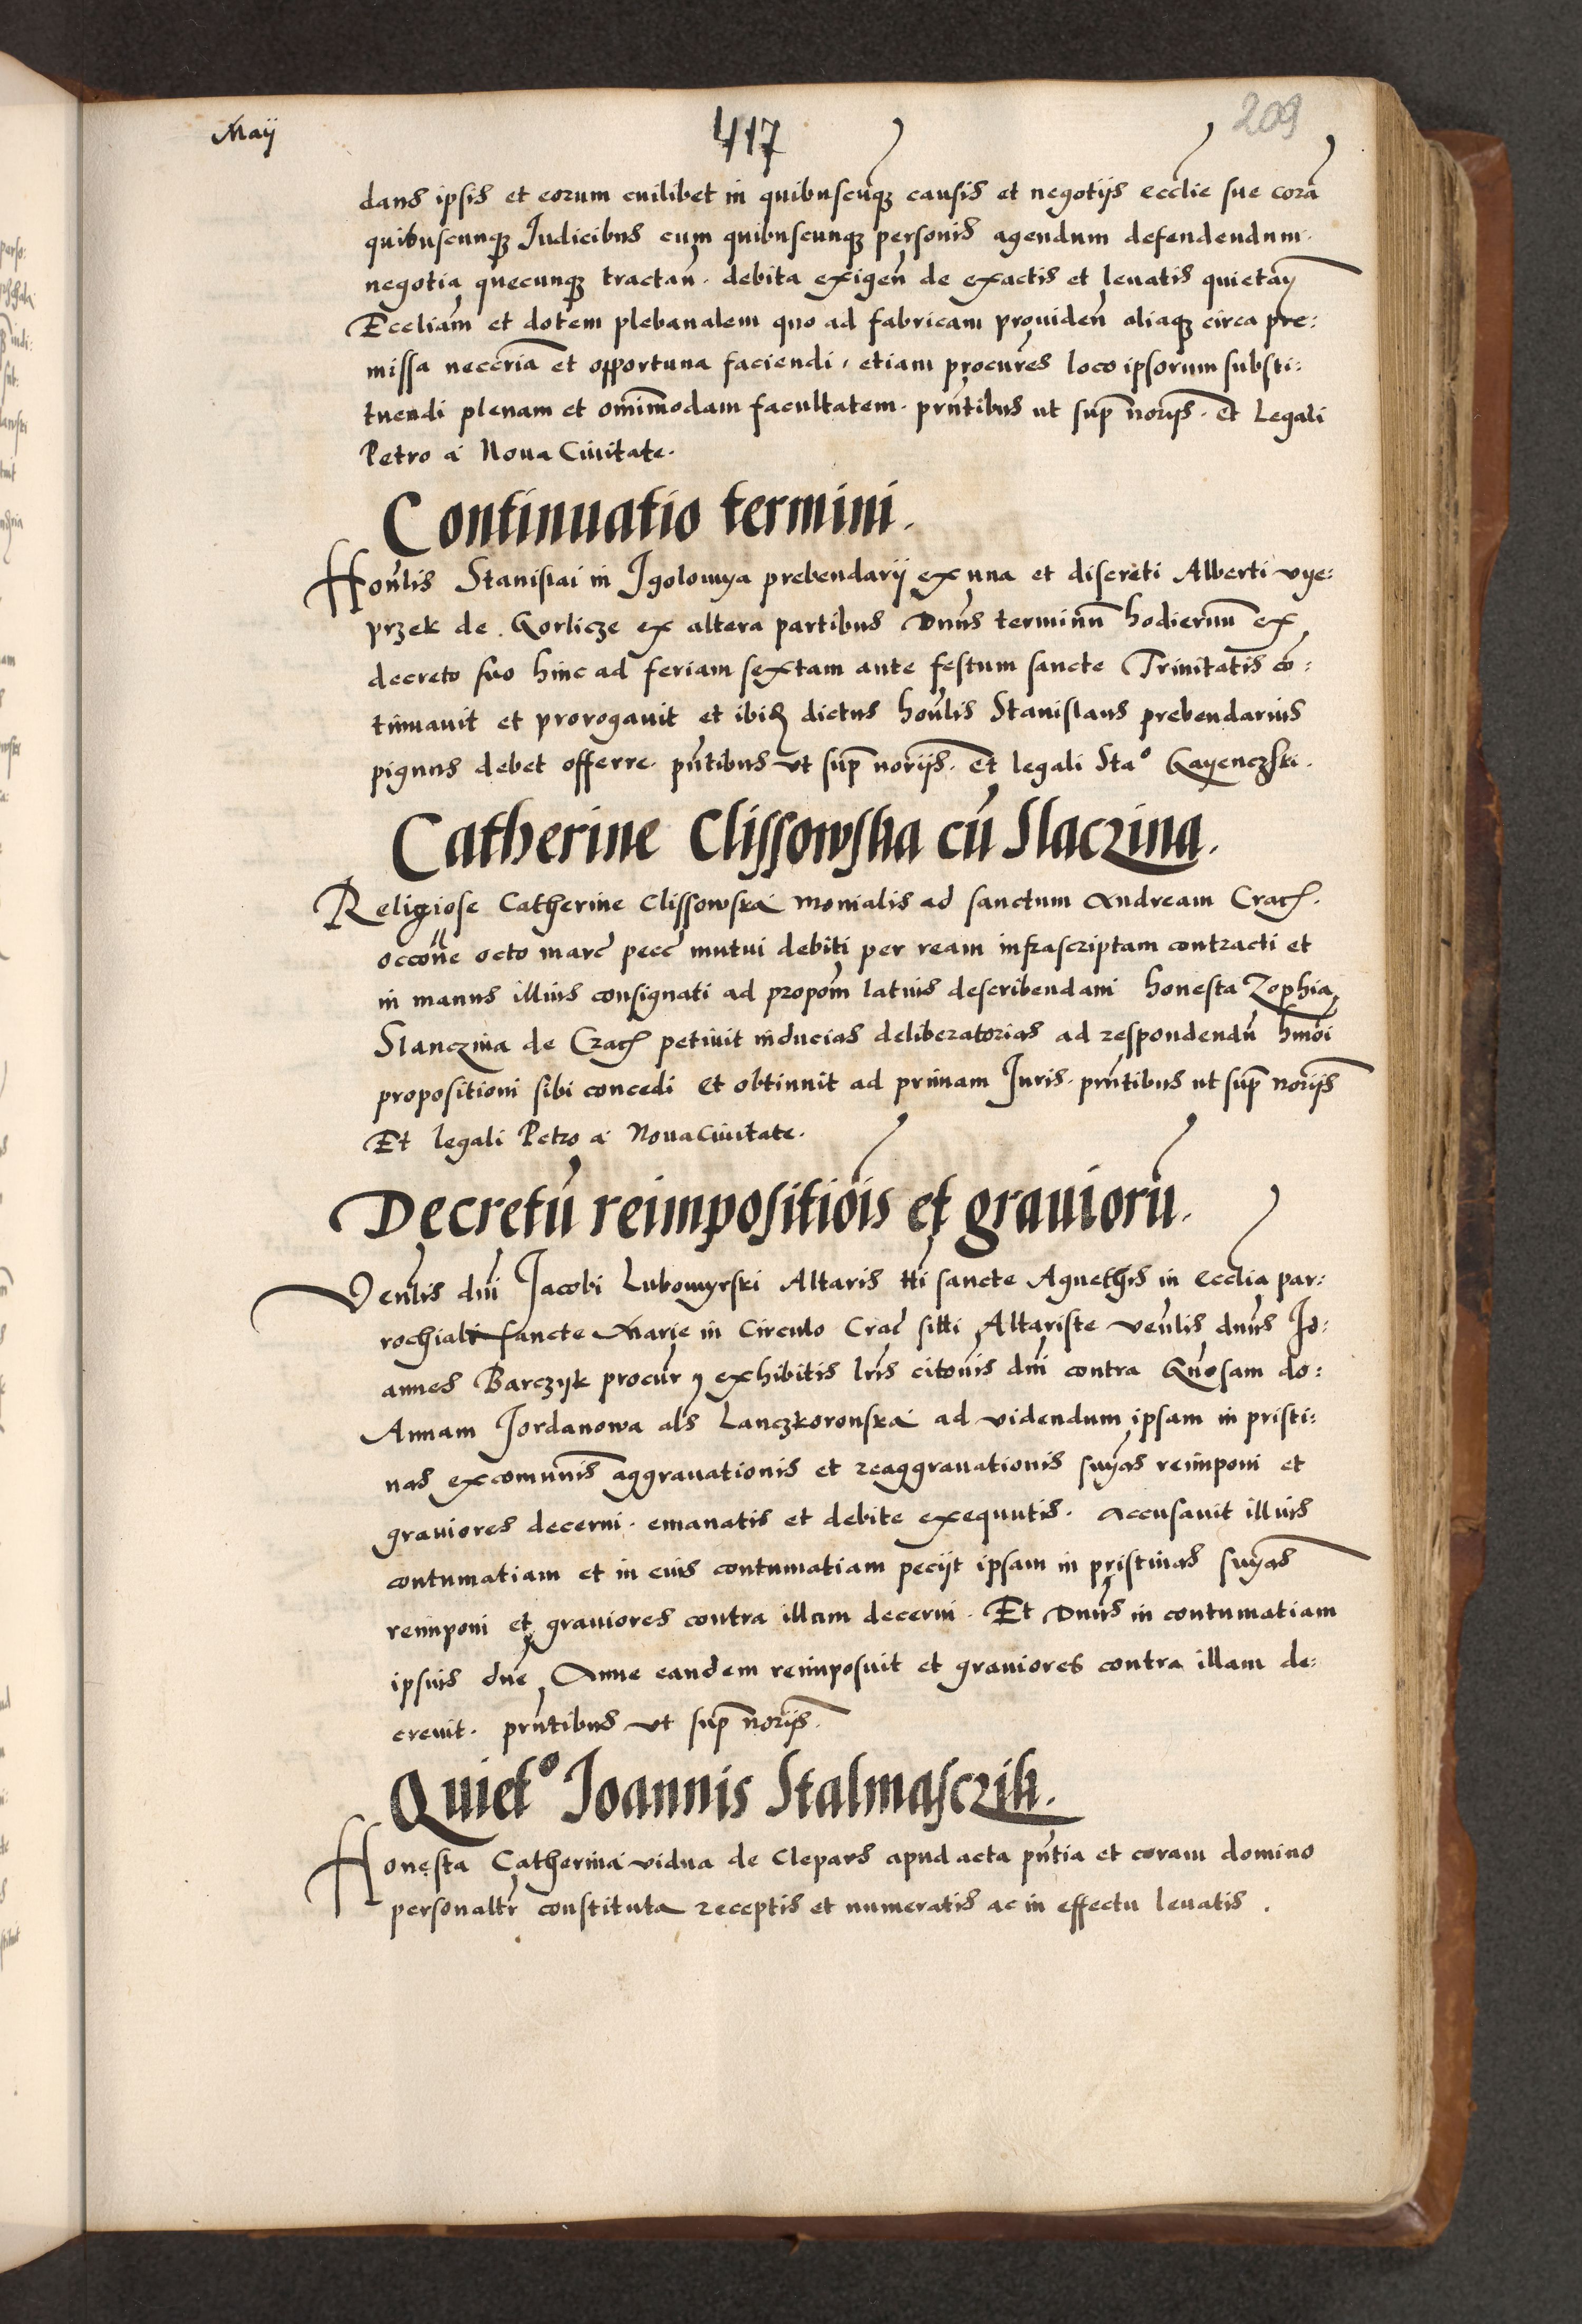 Maij
417
209
dans ipsis et eorum cuilibet in quibuscūqꝫ causis et negotijs ecclie sue corā
quibuscunqꝫ Iudicibus cum quibuscunqꝫ personis agendum defendendum.
negotia quecunqꝫ tractan̄. debita exigen̄ de exactis et levatis quietan̄
Eccliam et dotem plebanalem quo ad fabricam providen̄ aliaqꝫ circa pre:
missa neccria et opportuna faciendi, etiam procures loco ipsorum substi:
tuendi plenam et omīmodam facultatem. pn̄tibus ut sup̄ norijs. Et Legali
Petro a Nova Civitate.
Continuatio termini.
Hon̄lis Stanislai in Igolomya prebendarij ex una et discreti Alberti vye:
przek de Gorlicze ex altera partibus Dn̄us terminū hodiernū ex
decreto suo hinc ad feriam sextam ante festum sancte Trinitatis cō:
tinuavit et prorogavit et ibiꝫ dictus hon̄lis Stanislaus prebendarius
pignus debet offerre. pn̄tibus ut sup̄ norijs. Et legali Sta° Gayenczski.
Catherine Clissowska cū Slaczina.
Religiose Catherine Clissowska monialis ad sanctum Andream Crac̄.
occōne octo marc̄ pecc̄ mutui debiti per ream infrascriptam contracti et
in manus illius consignati ad propom̄ latius describendam honesta Zophia
Slanczina de Crac̄ petivit inducias deliberatorias ad respondendū hmōi
propositioni sibi concedi et obtinuit ad primam Iuris. pn̄tibus ut sup̄ norijs
Et legali Petro a Nova Civitate.
Decretū reimpositiōis et graviorū.
Ven̄lis dn̄i Jacobi Lubomyrski Altaris tti sancte Agnethis in Ecclia par:
rochiali sancte Marie in Circulo Crac̄ siti Altariste ven̄lis dn̄us Jo:
annes Barczyk procur̄ exhibitis lr̄is citōnis dn̄i contra Gn̄osam do:
Annam Jordanowa als Lanczkoronska ad videndum ipsam in pristi:
nas excomunīs aggravationis et reaggravationis sn̄ias reimponi et
graviores decerni. emanatis et debite exequutis. Accusavit illius
contumatiam et in eius contumatiam peciit ipsam in pristinas sn̄ias
reimponi et graviores contra illam decerni. Et Dn̄us in contumatiam
ipsius dn̄e Anne eandem reimposuit et graviores contra illam de:
crevit. pn̄tibus ut sup̄ norijs.
Quiet° Ioannis Stalmasczik.
Honesta Catherina vidua de Clepars apud acta pn̄tia et coram domino
personaltr̄ constituta receptis et numeratis ac in effectu levatis.